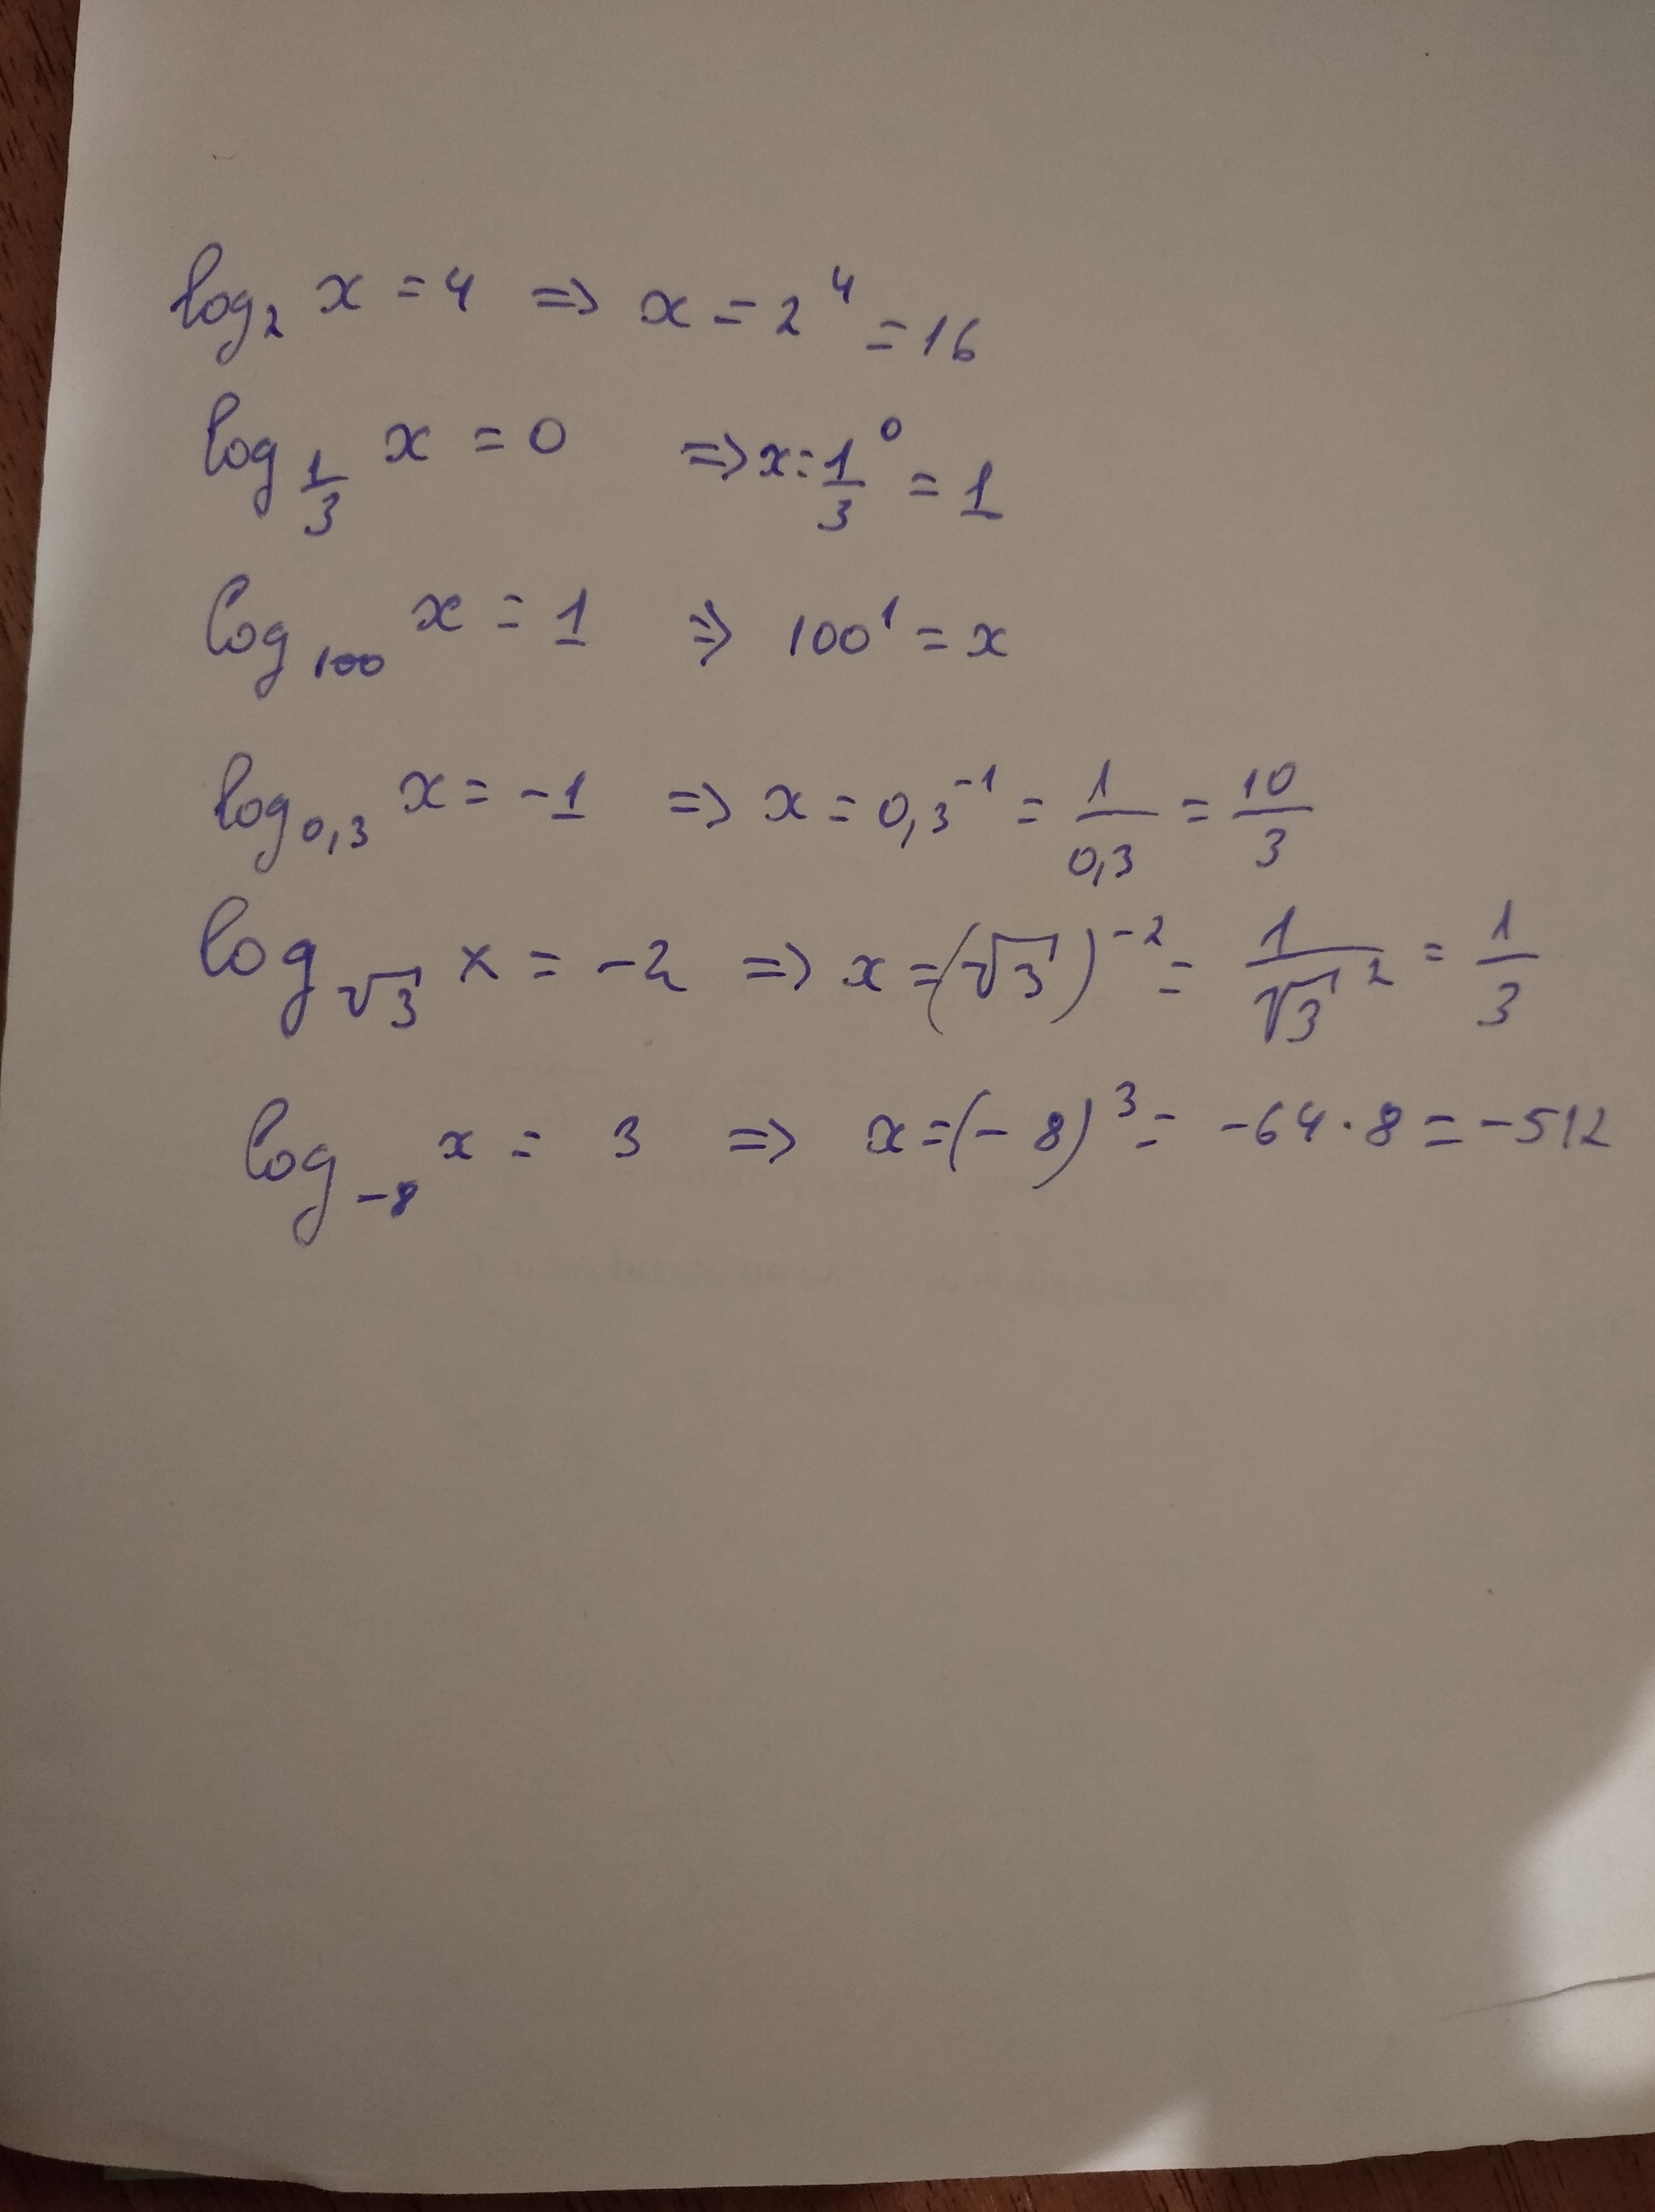 log₂ x = 4 ⇒ x = 2⁴ = 16
log_{1/3} x = 0 ⇒ x = 1/3⁰ = 1
log₁₀₀ x = 1 ⇒ 100¹ = x
log_{0,3} x = -1 ⇒ x = 0,3⁻¹ = 1/0,3 = 10/3
log_{√3} x = -2 ⇒ x = (√3)⁻² = 1/√3² = 1/3
log₋₈ x = 3 ⇒ x = (-8)³ = -64·8 = -512